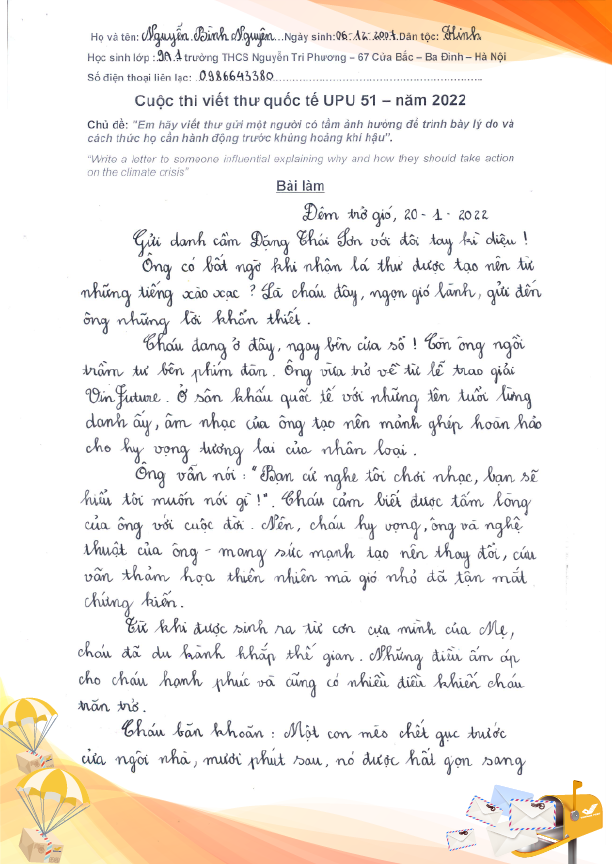 Họ và tên: Nguyễn Bình Nguyên Ngày sinh: 06.12.2007 Dân tộc: Kinh
Học sinh lớp : 9A1 trường THCS Nguyễn Tri Phương – 67 Cửa Bắc – Ba Đình – Hà Nội
Số điện thoại liên lạc: 0986643380
Cuộc thi viết thư quốc tế UPU 51 – năm 2022
Chủ đề: "Em hãy viết thư gửi một người có tầm ảnh hưởng để trình bày lý do và
cách thức họ cần hành động trước khủng hoảng khí hậu".
"Write a letter to someone influential explaining why and how they should take action
on the climate crisis"
Bài làm
Đêm trở gió, 20 - 1 - 2022
Gửi danh cầm Đặng Thái Sơn với đôi tay kì diệu !
Ông có bất ngờ khi nhận lá thư được tạo nên từ
những tiếng xào xạc ? Là cháu đây, ngọn gió lành, gửi đến
ông những lời khẩn thiết .
Cháu đang ở đây, ngay bên cửa sổ ! Còn ông ngồi
trầm tư bên phím đàn . Ông vừa trở về từ lễ trao giải
VinFuture . Ở sân khấu quốc tế với những tên tuổi lừng
danh ấy, âm nhạc của ông tạo nên mảnh ghép hoàn hảo
cho hy vọng tương lai của nhân loại .
Ông vẫn nói : "Bạn cứ nghe tôi chơi nhạc, bạn sẽ
hiểu tôi muốn nói gì !". Cháu cảm biết được tấm lòng
của ông với cuộc đời . Nên, cháu hy vọng, ông và nghệ
thuật của ông - mang sức mạnh tạo nên thay đổi, cứu
vãn thảm họa thiên nhiên mà gió nhỏ đã tận mắt
chứng kiến.
Từ khi được sinh ra từ cơn cựa mình của Mẹ,
cháu đã du hành khắp thế gian . Những điều ấm áp
cho cháu hạnh phúc và cũng có nhiều điều khiến cháu
trăn trở .
Cháu băn khoăn : Một con mèo chết gục trước
cửa ngôi nhà, mười phút sau, nó được hất gọn sang